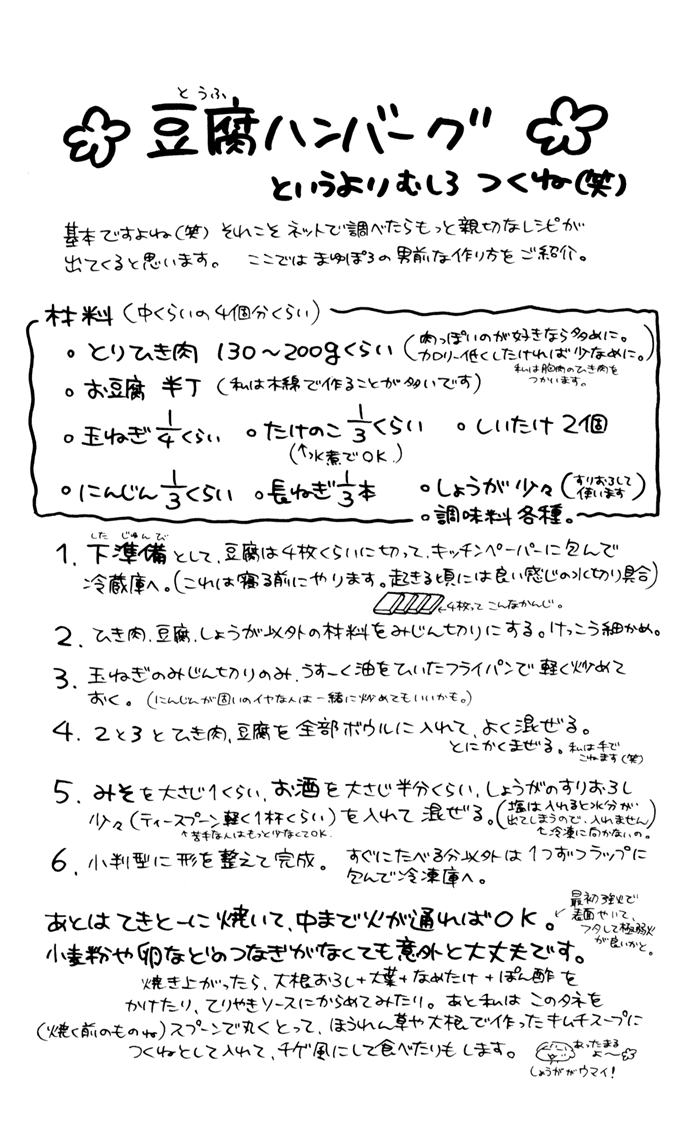 とうふ
豆腐ハンバーグ
というよりむしろ つくね(笑)
基本ですよね(笑) それこそネットで調べたらもっと親切なレシピが
出てくると思います。 ここでは まゆぽろの男前な作り方をご紹介。
材料(中くらいの4個分くらい)
。とりひき肉 130〜200gくらい(肉っぽいのが好きなら多めに。
カロリー低くしたければ少なめに。)
私は胸肉のひき肉を
つかいます。
。お豆腐 半丁(私は木綿で作ることが多いです)
。玉ねぎ 1/4 くらい 。たけのこ 1/3 くらい 。しいたけ 2個
(↑水煮でOK.)
。にんじん 1/3 くらい 。長ねぎ 1/3 本 。しょうが 少々(すりおろして
使います)
。調味料各種。
した じゅんび
1. 下準備として、豆腐は4枚くらいに切って、キッチンペーパーに包んで
冷蔵庫へ。(これは寝る前にやります。起きる頃には良い感じの水切り具合)
←4枚って こんなかんじ。
2. ひき肉、豆腐、しょうが以外の材料をみじん切りにする。けっこう細かめ。
3. 玉ねぎのみじん切りのみ、うすーく油をひいたフライパンで 軽く炒めて
おく。(にんじんが固いのイヤな人は一緒に炒めてもいいかも。)
4. 2と3とひき肉、豆腐を全部ボウルに入れて、よく混ぜる。
とにかくまぜる。私は手で
こねます(笑)
5. みそを大さじ1くらい、お酒を大さじ半分くらい、しょうがのすりおろし
少々(ティースプーン軽く1杯くらい)を入れて 混ぜる。(塩は入れると水分が
出てしまうので、入れません)
↑苦手な人はもっと少なくてOK.
↖冷凍に向かないの。
6. 小判型に形を整えて完成。 すぐにたべる分以外は1つずつラップに
包んで冷凍庫へ。
あとは てきとーに焼いて、中まで火が通ればOK。
最初強火で
表面やいて、
フタして極弱火
が良いかと。
小麦粉や卵などのつなぎがなくても意外と大丈夫です。
焼き上がったら、大根おろし+大葉+なめたけ+ぽん酢を
かけたり、てりやきソースにからめてみたり。あと私は このタネを
(焼く前のものね)スプーンで丸くとって、ほうれん草や大根で作ったキムチスープに
つくねとして入れて、チゲ風にして食べたりもします。
あったまる
よ〜
しょうががウマイ!